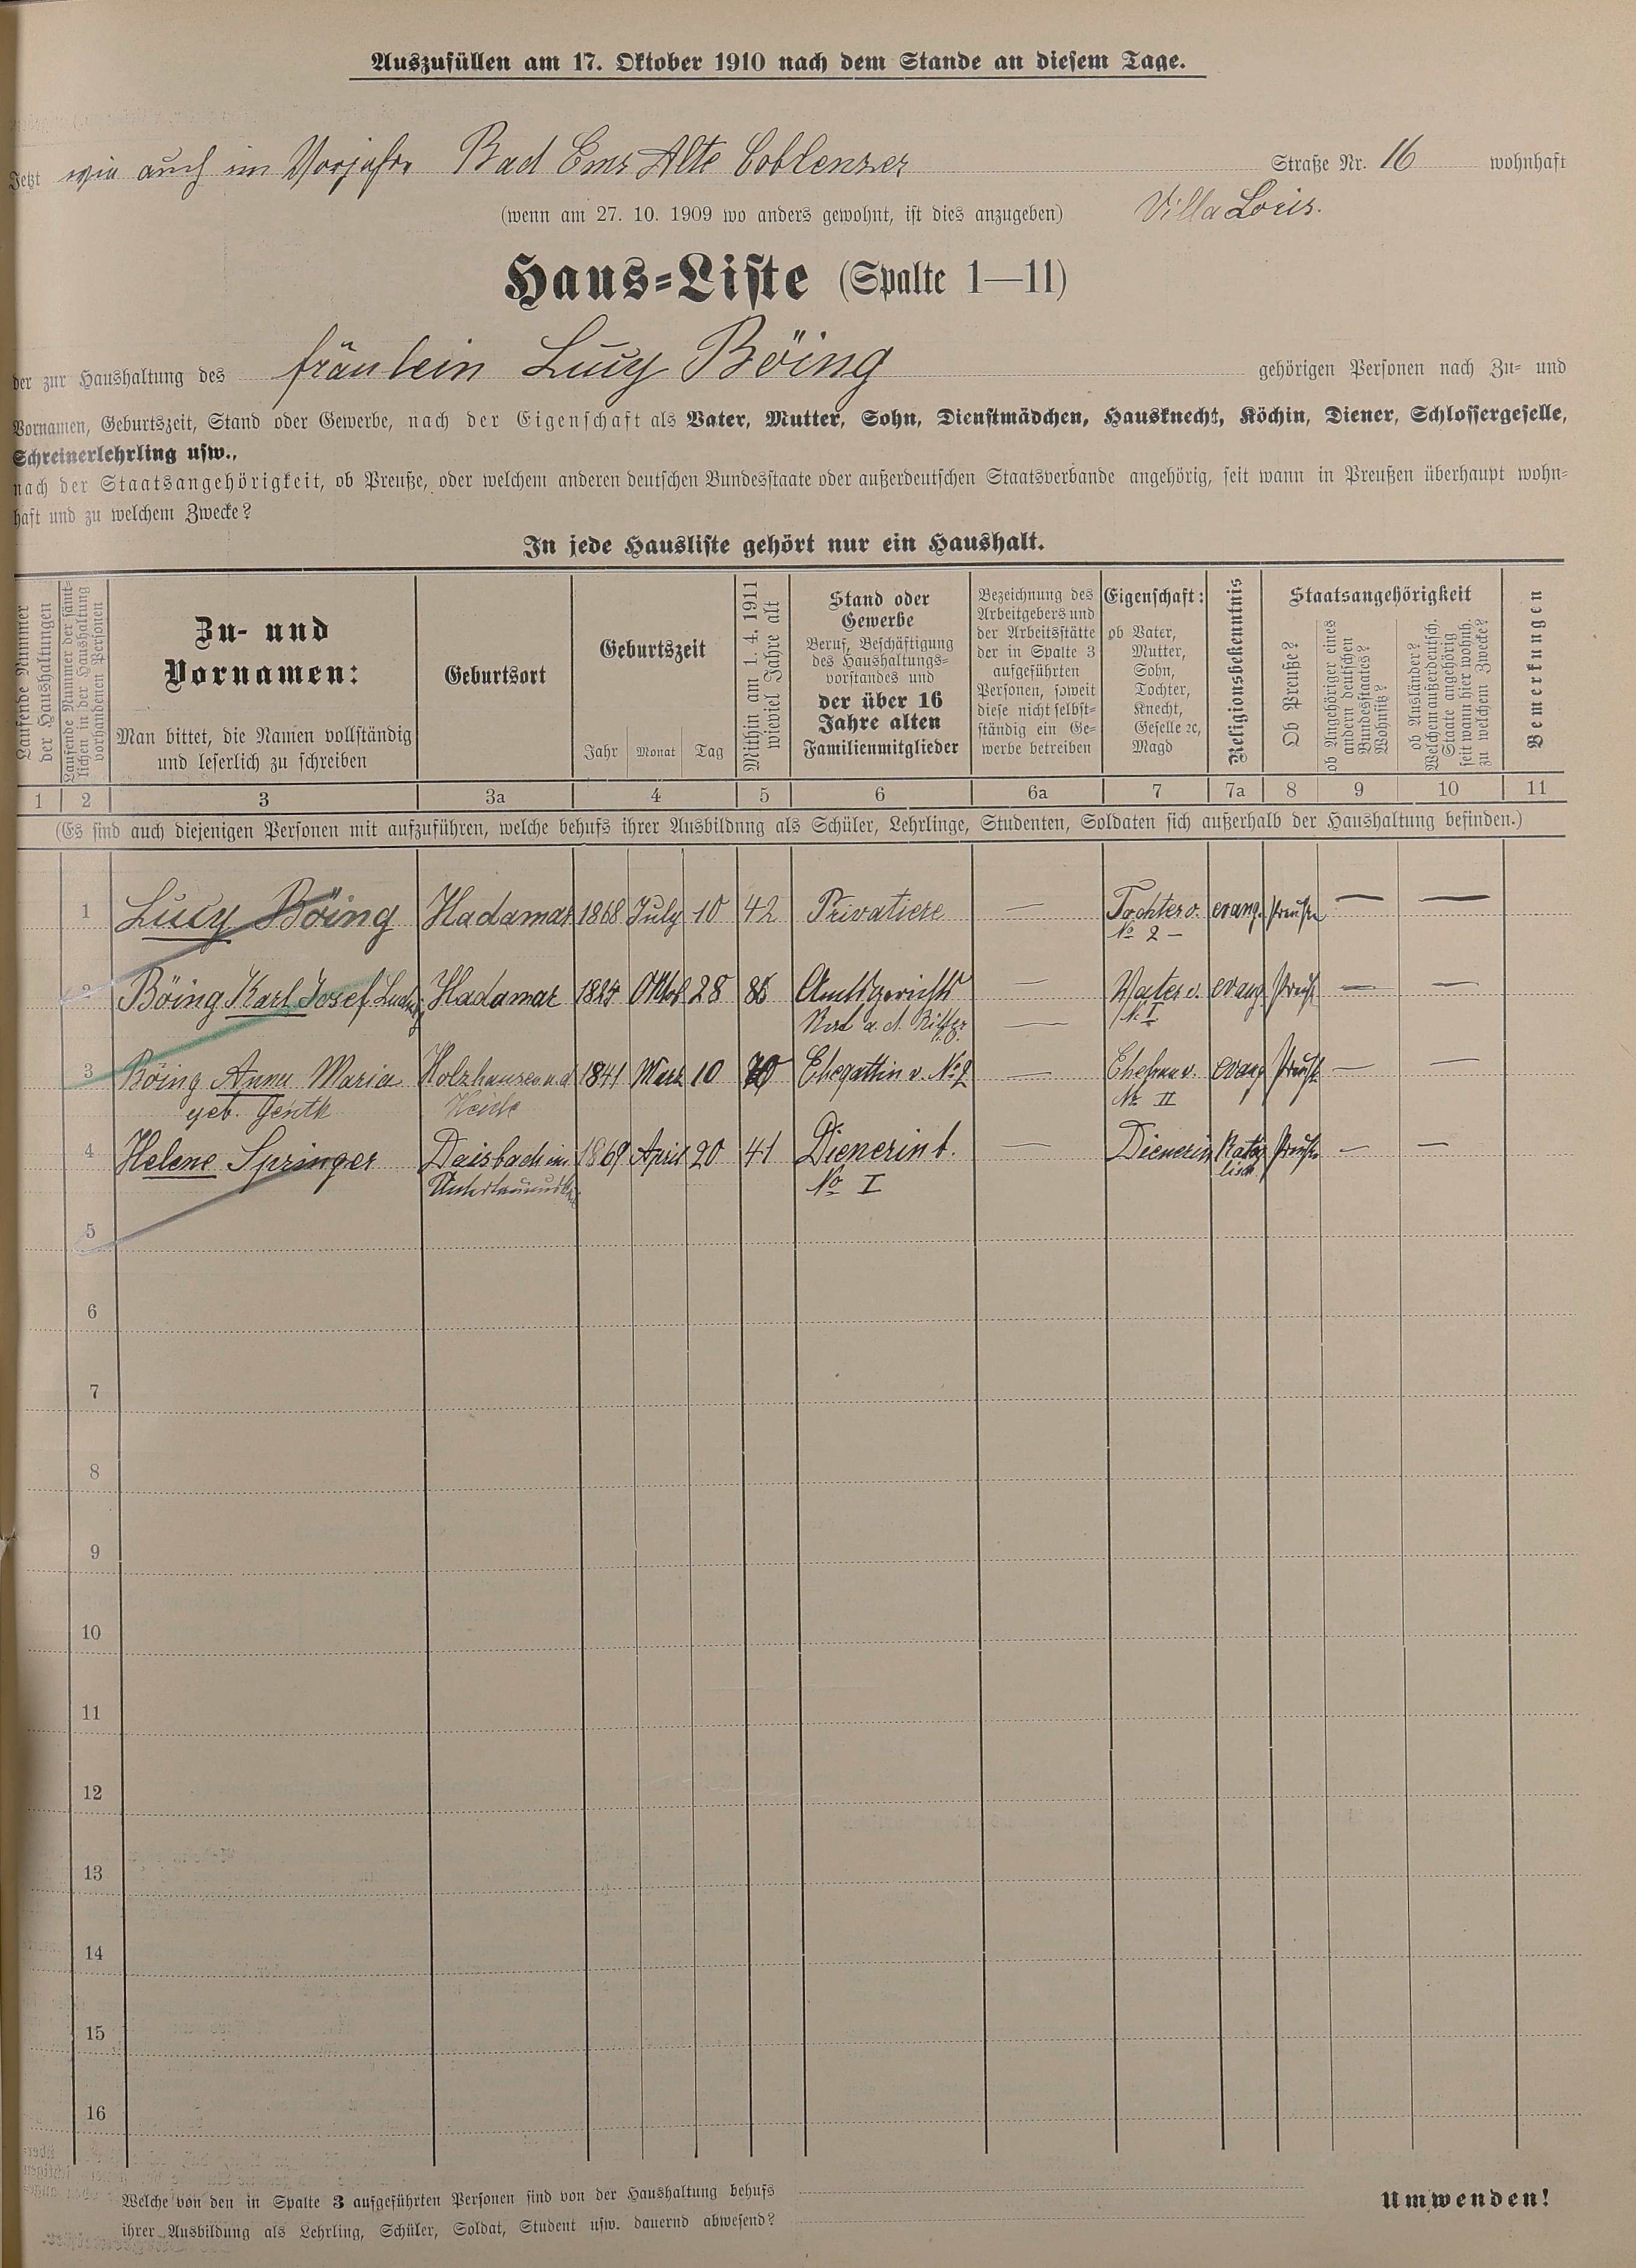 Auszufüllen am 17. Oktober 1910 nach dem Stande an diesem Tage.
Jetzt wie auch im Vorjahre Bad Ems Alte Coblenzer Straße Nr. 16 wohnhaft
(wenn am 27. 10. 1909 wo anders gewohnt, ist dies anzugeben) Villa Loris.
Haus-Liste (Spalte 1—11)
der zur Haushaltung des fräulein Lucy Böing gehörigen Personen nach Zu- und
Vornamen, Geburtszeit, Stand oder Gewerbe, nach der Eigenschaft als Vater, Mutter, Sohn, Dienstmädchen, Hausknecht, Köchin, Diener, Schlossergeselle,
Schreinerlehrling usw.,
nach der Staatsangehörigkeit, ob Preuße, oder welchem anderen deutschen Bundesstaate oder außerdeutschen Staatsverbande angehörig, seit wann in Preußen überhaupt wohn-
haft und zu welchem Zwecke?
In jede Hausliste gehört nur ein Haushalt.
Laufende Nummer
der Haushaltungen
Laufende Nummer der sämt-
lichen in der Haushaltung
vorhandenen Personen
Zu- und
Vornamen:
Man bittet, die Namen vollständig
und leserlich zu schreiben
Geburtsort
Geburtszeit
Jahr Monat Tag
Mithin am 1. 4. 1911
wieviel Jahre alt
Stand oder
Gewerbe
Beruf, Beschäftigung
des Haushaltungs-
vorstandes und
der über 16
Jahre alten
Familienmitglieder
Bezeichnung des
Arbeitgebers und
der Arbeitsstätte
der in Spalte 3
aufgeführten
Personen, soweit
diese nicht selbst-
ständig ein Ge-
werbe betreiben
Eigenschaft:
ob Vater,
Mutter,
Sohn,
Tochter,
Knecht,
Geselle ꝛc,
Magd
Religionsbekenntnis
Staatsangehörigkeit
Ob Preuße?
ob Angehöriger eines
andern deutschen
Bundesstaates?
Wohnsitz?
ob Ausländer?
Welchem außerdeutsch.
Staate angehörig
seit wann hier wohnh.
zu welchem Zwecke?
Bemerkungen
1 2 3 3a 4 5 6 6a 7 7a 8 9 10 11
(Es sind auch diejenigen Personen mit aufzuführen, welche behufs ihrer Ausbildung als Schüler, Lehrlinge, Studenten, Soldaten sich außerhalb der Haushaltung befinden.)
1 Lucy Böing Hadamar 1868 July 10 42 Privatiere — Tochter v. evang. Preuße — —
No 2 —
2 Böing Karl Josef Hadamar 1824 Oktob 28 86 Amtsgerichts — Vater v. evang Preuß — —
Rat a. d. —
No I
3 Böing Anna Maria Holzhausen a. d. 1841 März 10 70 Ehegattin v. No 2 — Ehefrau v. evang Preuß — —
geb. Heide No II
4 Helene Springer Daisbach im 1869 April 20 41 Dienerin b. — Dienerin Katho Preuße — —
No I lisch
5
6
7
8
9
10
11
12
13
14
15
16
Welche von den in Spalte 3 aufgeführten Personen sind von der Haushaltung behufs
ihrer Ausbildung als Lehrling, Schüler, Soldat, Student usw. dauernd abwesend?
Umwenden!